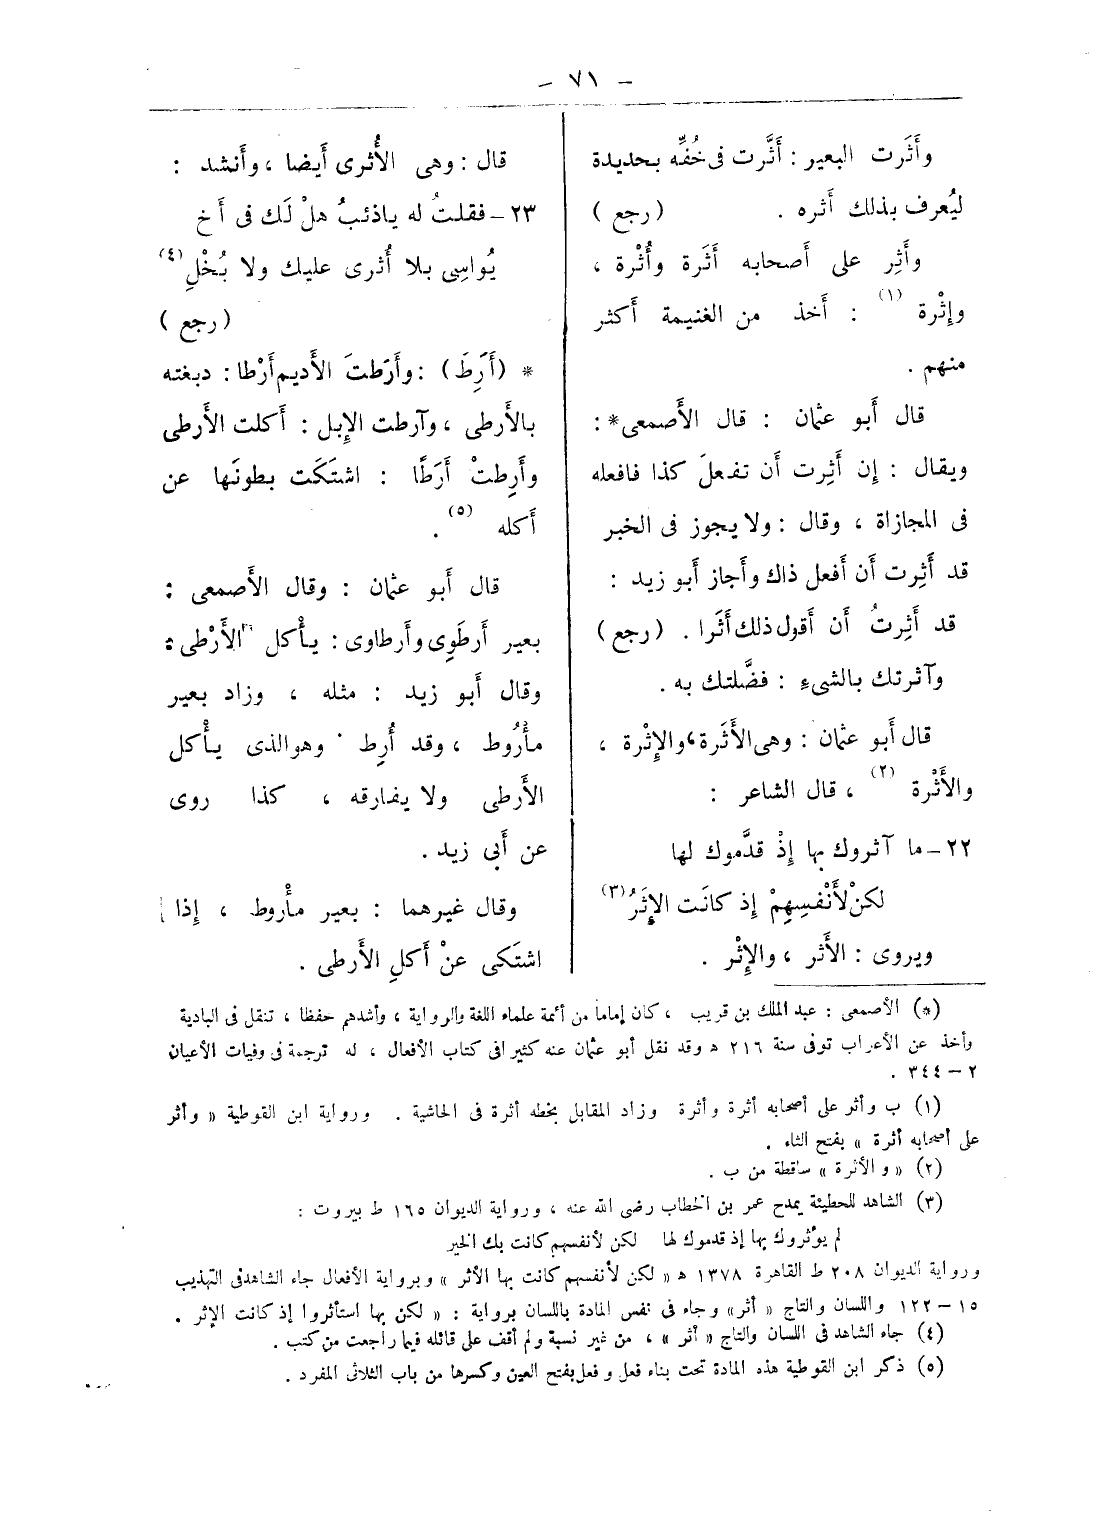 – ٧١ –
وأَثَرت البعير : أَثَّرت فى خُفِّه بحديدة
ليُعرف بذلك أَثره . ( رجع )
وأَثِر على أَصحابه أَثَرة وأُثْرة ،
وإِثْرة (١) : أَخذ من الغنيمة أَكثر
منهم .
قال أَبو عثمان : قال الأَصمعى* :
ويقال : إِن أَثِرت أَن تفعلَ كذا فافعله
فى المجازاة ، وقال : ولا يجوز فى الخبر
قد أَثِرت أَن أَفعل ذاك وأَجاز أَبو زيد :
قد أَثِرتُ أَن أَقول ذلك أَثَرا . ( رجع )
وآثرتك بالشىءِ : فضَّلتك به .
قال أَبو عثمان : وهى الأَثَرة ، والإِثْرة ،
والأُثْرة (٢) ، قال الشاعر :
٢٢ – ما آثروك بها إِذْ قدَّموك لها
لكنْ لأَنْفسِهِمْ إِذ كانَت الإِثَرُ (٣)
ويروى : الأَثر ، والإِثْر .
قال : وهى الأُثرى أَيضا ، وأَنشد :
٢٣ – فقلتُ له ياذئبُ هلْ لَك فى أَخ
يُواسِى بلا أُثرى عليك ولا بُخْلِ (٤)
( رجع )
* ( أَرِطَ ) : وأَرَطتَ الأَديم أَرْطا : دبغته
بالأَرطى ، وآرطت الإِبل : أَكلت الأَرطى
وأَرِطتْ أَرَطًا : اشتَكَت بطونَها عن
أَكله (٥) .
قال أَبو عثمان : وقال الأَصمعى :
بعير أَرطَوِى وأَرطاوى : يأْكل الأَرْطى :
وقال أَبو زيد : مثله ، وزاد بعير
مأْرُوط ، وقد أُرِط وهو الذى يأْكل
الأَرطى ولا يفارقه ، كذا روى
عن أَبى زيد .
وقال غيرهما : بعير مأْروط ، إِذا
اشتَكى عنْ أَكلِ الأَرطى .
(*) الأصمعى : عبد الملك بن قريب ، كان إماما من أئمة علماء اللغة والرواية ، وأشدهم حفظا ، تنقل فى البادية
وأخذ عن الأعراب توفى سنة ٢١٦ هـ وقد نقل أبو عثمان عنه كثيرا فى كتاب الأفعال ، له ترجمة فى وفيات الأعيان
٢ – ٣٤٤ .
(١) ب وأثر على أصحابه أثرة وأثرة وزاد المقابل بخطه أثرة فى الحاشية . ورواية ابن القوطية « وأثر
على أصحابه أثرة » بفتح الثاء .
(٢) « والأثرة » ساقطة من ب .
(٣) الشاهد للحطيئة يمدح عمر بن الخطاب رضى الله عنه ، ورواية الديوان ١٦٥ ط بيروت :
لم يؤثروك بها إذ قدموك لها لكن لأنفسهم كانت بك الخير
ورواية الديوان ٢٠٨ ط القاهرة ١٣٧٨ هـ « لكن لأنفسهم كانت بها الأثر » وبرواية الأفعال جاء الشاهد فى التهذيب
١٥ – ١٢٢ واللسان والتاج « أثر » وجاء فى نفس المادة باللسان برواية : « لكن بها استأثروا إذ كانت الإثر .
(٤) جاء الشاهد فى اللسان والتاج « أثر » ، من غير نسبة ولم أقف على قائله فيما راجعت من كتب .
(٥) ذكر ابن القوطية هذه المادة تحت بناء فعل وفعل بفتح العين وكسرها من باب الثلاثى المفرد .